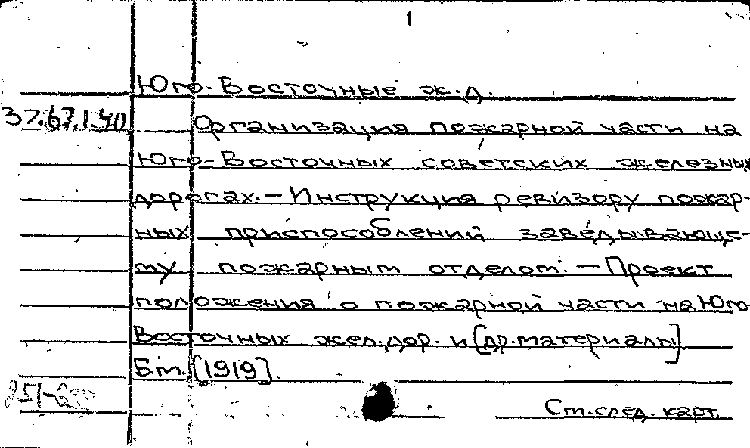 1
Юго-Восточные ж.д.
37.67.1.40
Организация пожарной части на
Юго-Восточных советских железных
дорогах. – Инструкция ревизору пожар-
ных приспособлений заведывающе-
му пожарным отделом. – Проект
положения о пожарной части на Юго-
Восточных жел.дор. и [др.материалы]
Б.м. [1919].
См.след. карт.